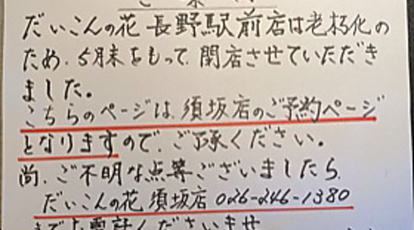 だいこんの花 長野駅前店は老朽化の
ため、5月末をもって、閉店させていただき
ました。
こちらのページは、須坂店のご予約ページ
となりますので、ご了承ください。
尚、ご不明な点等ございましたら、
だいこんの花 須坂店 026-246-1380
までお電話くださいませ